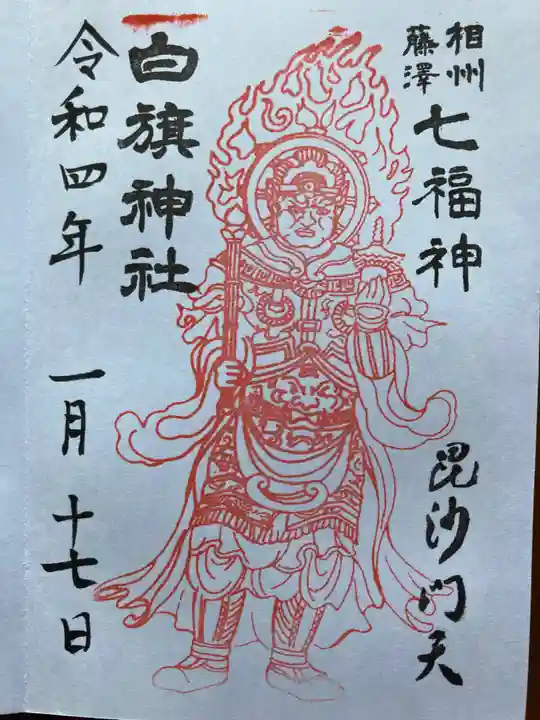 相州
藤澤
七福神
毘沙門天
白旗神社
令和四年 一月 十七日